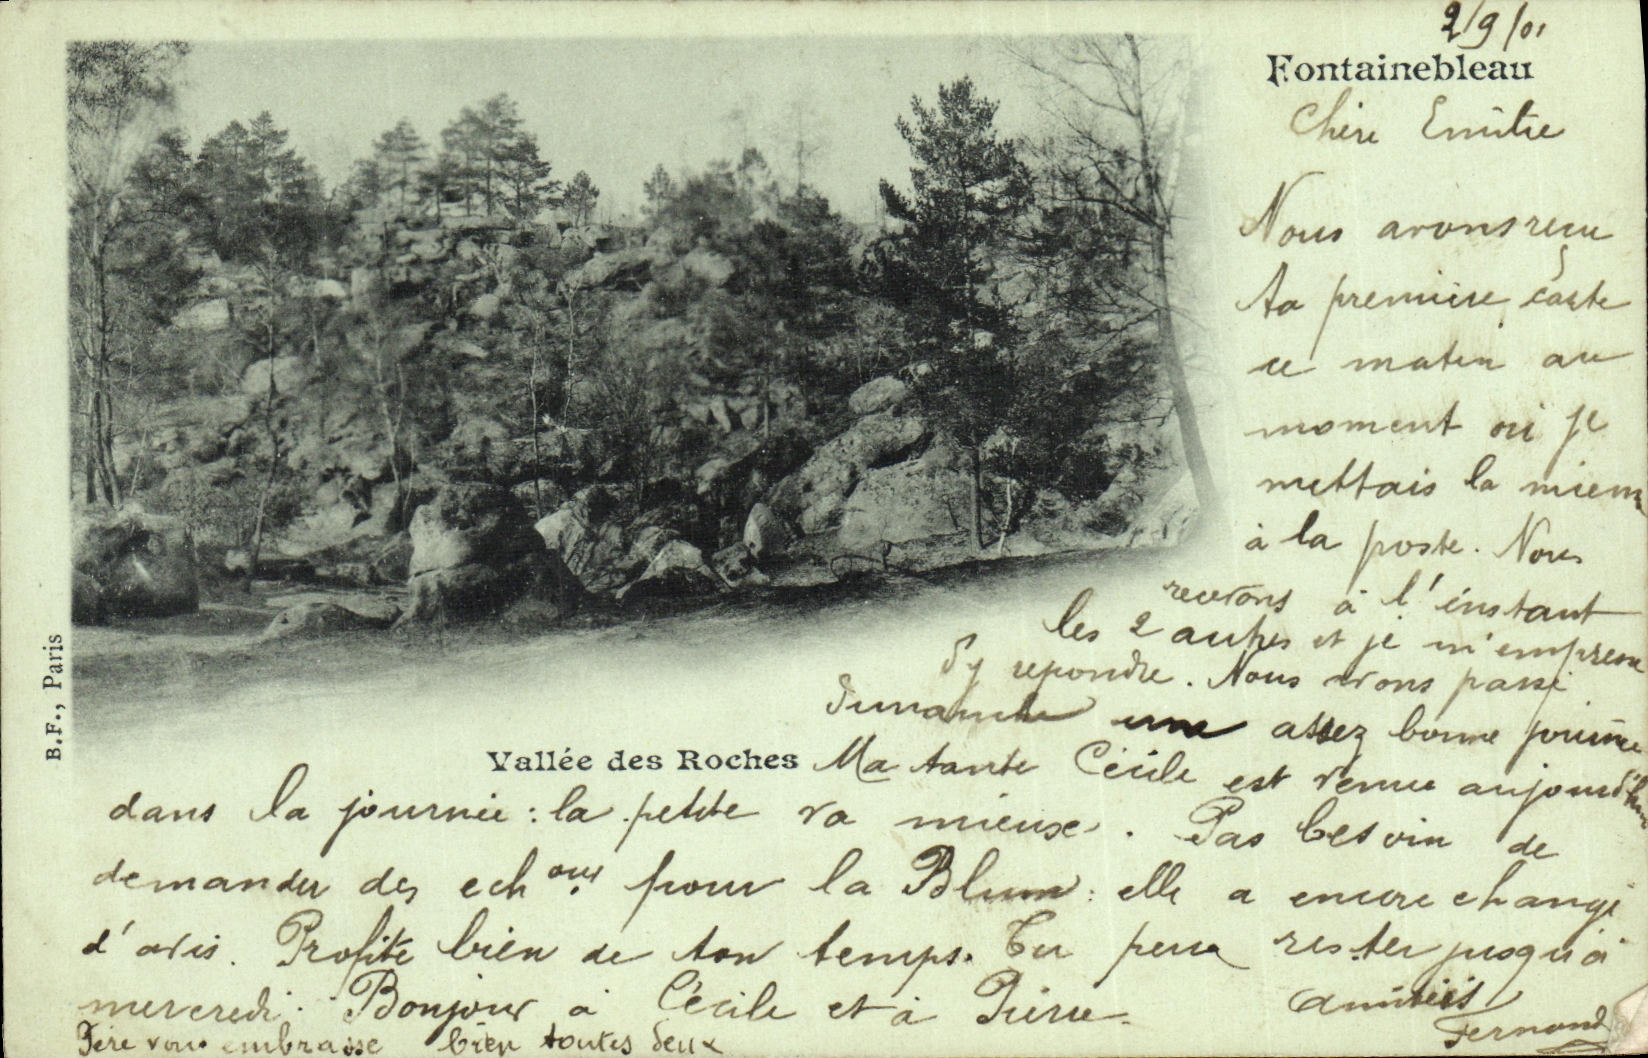 2/9/01
Fontainebleau
Chère Emilie
Nous avons reçu
ta première carte
ce matin au
moment où je
mettais la mienne
à la poste. Nous
recevons à l'instant
les 2 autres et je m'empresse
d'y repondre. Nous avons passé
dimanche une assez bonne journée
Vallée des Roches
Ma tante Cécile est venue aujourd'hui
dans la journée : la petite va mieux. Pas besoin de
demander des echons pour la Blum : elle a encore changé
d'avis. Profite bien de ton temps. Tu peux rester jusqu'à
mercredi. Bonjour à Cécile et à Pierre.
Amitiés
Fernand
Père vous embrasse bien toutes deux
B.F., Paris